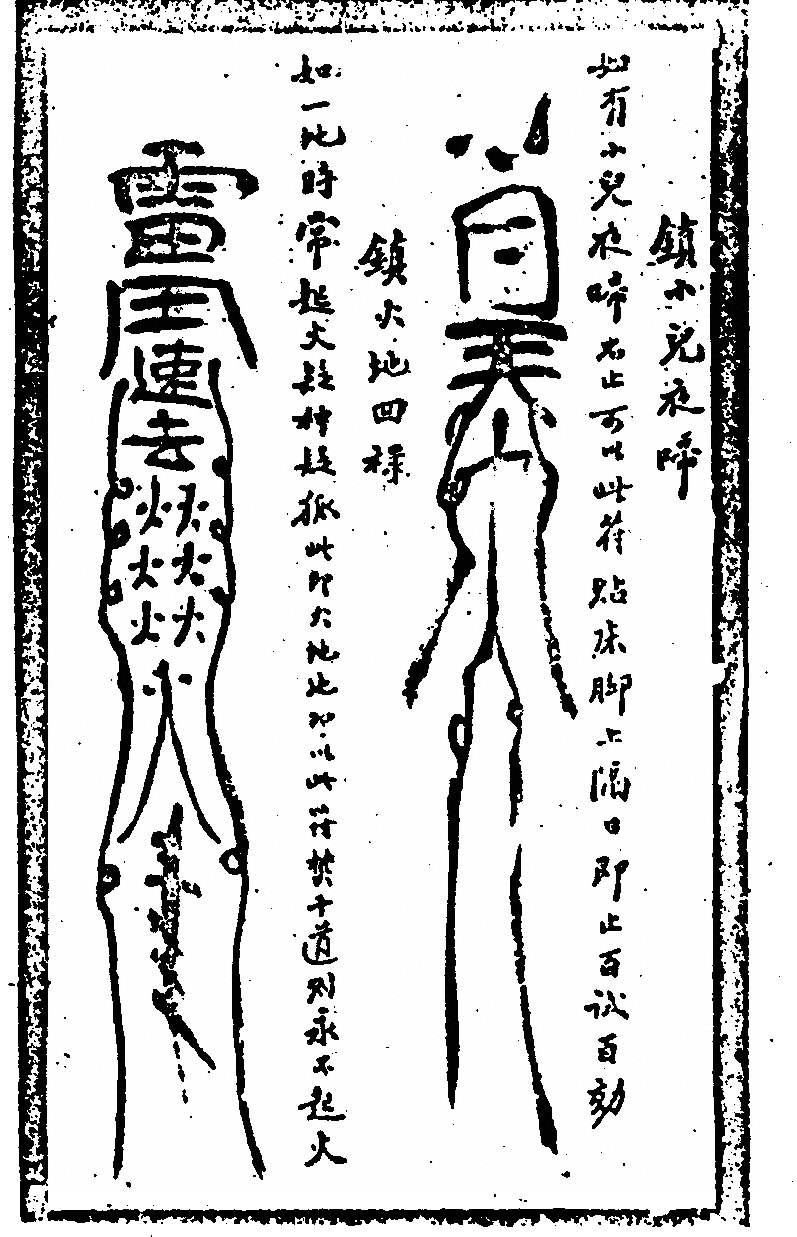 鎮小兒夜啼
如有小兒夜啼不止可以此符貼床脚上隔日即止百試百効
鎮火地四樣
如一地時常起火疑神疑狐此即火地也即以此符焚于道則永不起火
靈
速
去
火火
火火
火火